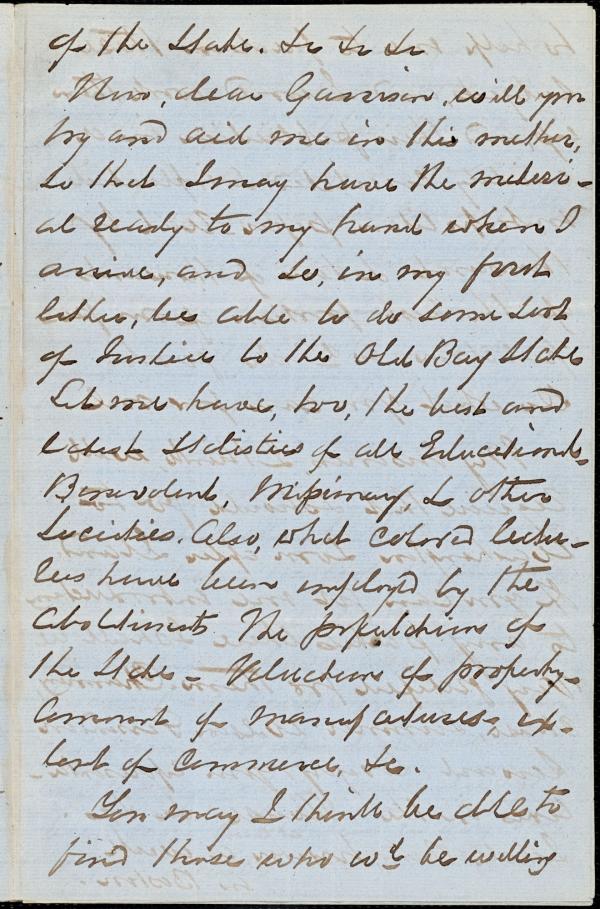 of the State. &c &c &c
Now, dear Garrison, will you
try and aid me in this matter,
so that I may have the materi-
al ready to my hand when I
arrive, and so, in my first
letter, be able to do some sort
of Justice to the Old Bay State
Let me have, too, the best and
latest Statistics of all Educational-
Benevolent, Missionary, & other
Societies. Also, what colored lectu-
rers have been employed by the
Abolitionists. The populations of
the State - Valuations of property-
amount of manufactures - ex-
tent of Commerce, &c.
You may I think be able to
find those who wd be willing